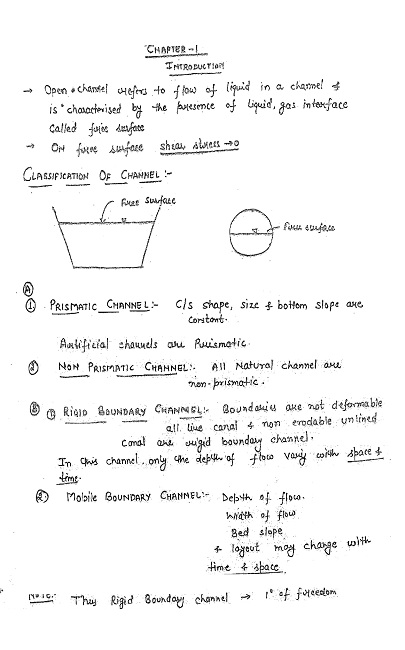 CHAPTER-1
INTRODUCTION
→ Open channel refers to flow of liquid in a channel &
is characterised by the presence of liquid, gas interface
called free surface
→ On free surface shear stress → 0
CLASSIFICATION OF CHANNEL:-
Free surface
Free surface
Ⓐ
① PRISMATIC CHANNEL:- C/s shape, size & bottom slope are
constant.
Artificial channels are Prismatic.
② NON PRISMATIC CHANNEL:- All Natural channel are
non-prismatic.
Ⓑ ① RIGID BOUNDARY CHANNEL:- Boundaries are not deformable
all line canal & non erodable unlined
canal are rigid boundary channel.
In this channel only the depth of flow vary with space &
time.
② Mobile BOUNDARY CHANNEL:- Depth of flow.
Width of flow
Bed slope
& layout may change with
time & space
NOTE:- Thus Rigid Boundary channel → 1° of freedom